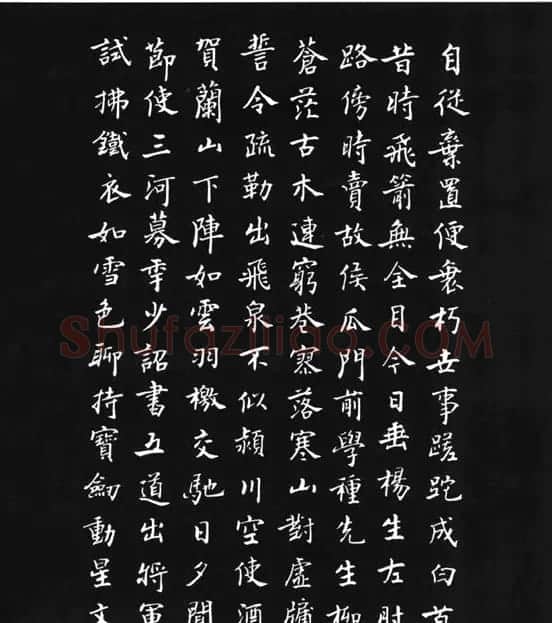 自從棄置便衰朽世事蹉跎成白首
昔時飛箭無全目今日垂楊生左肘
路傍時賣故侯瓜門前學種先生柳
蒼茫古木連窮巷寥落寒山對虛牖
誓令疏勒出飛泉不似潁川空使酒
賀蘭山下陣如雲羽檄交馳日夕聞
節使三河募年少詔書五道出將軍
試拂鐵衣如雪色聊持寶劒動星文
Shufaziliao.COM